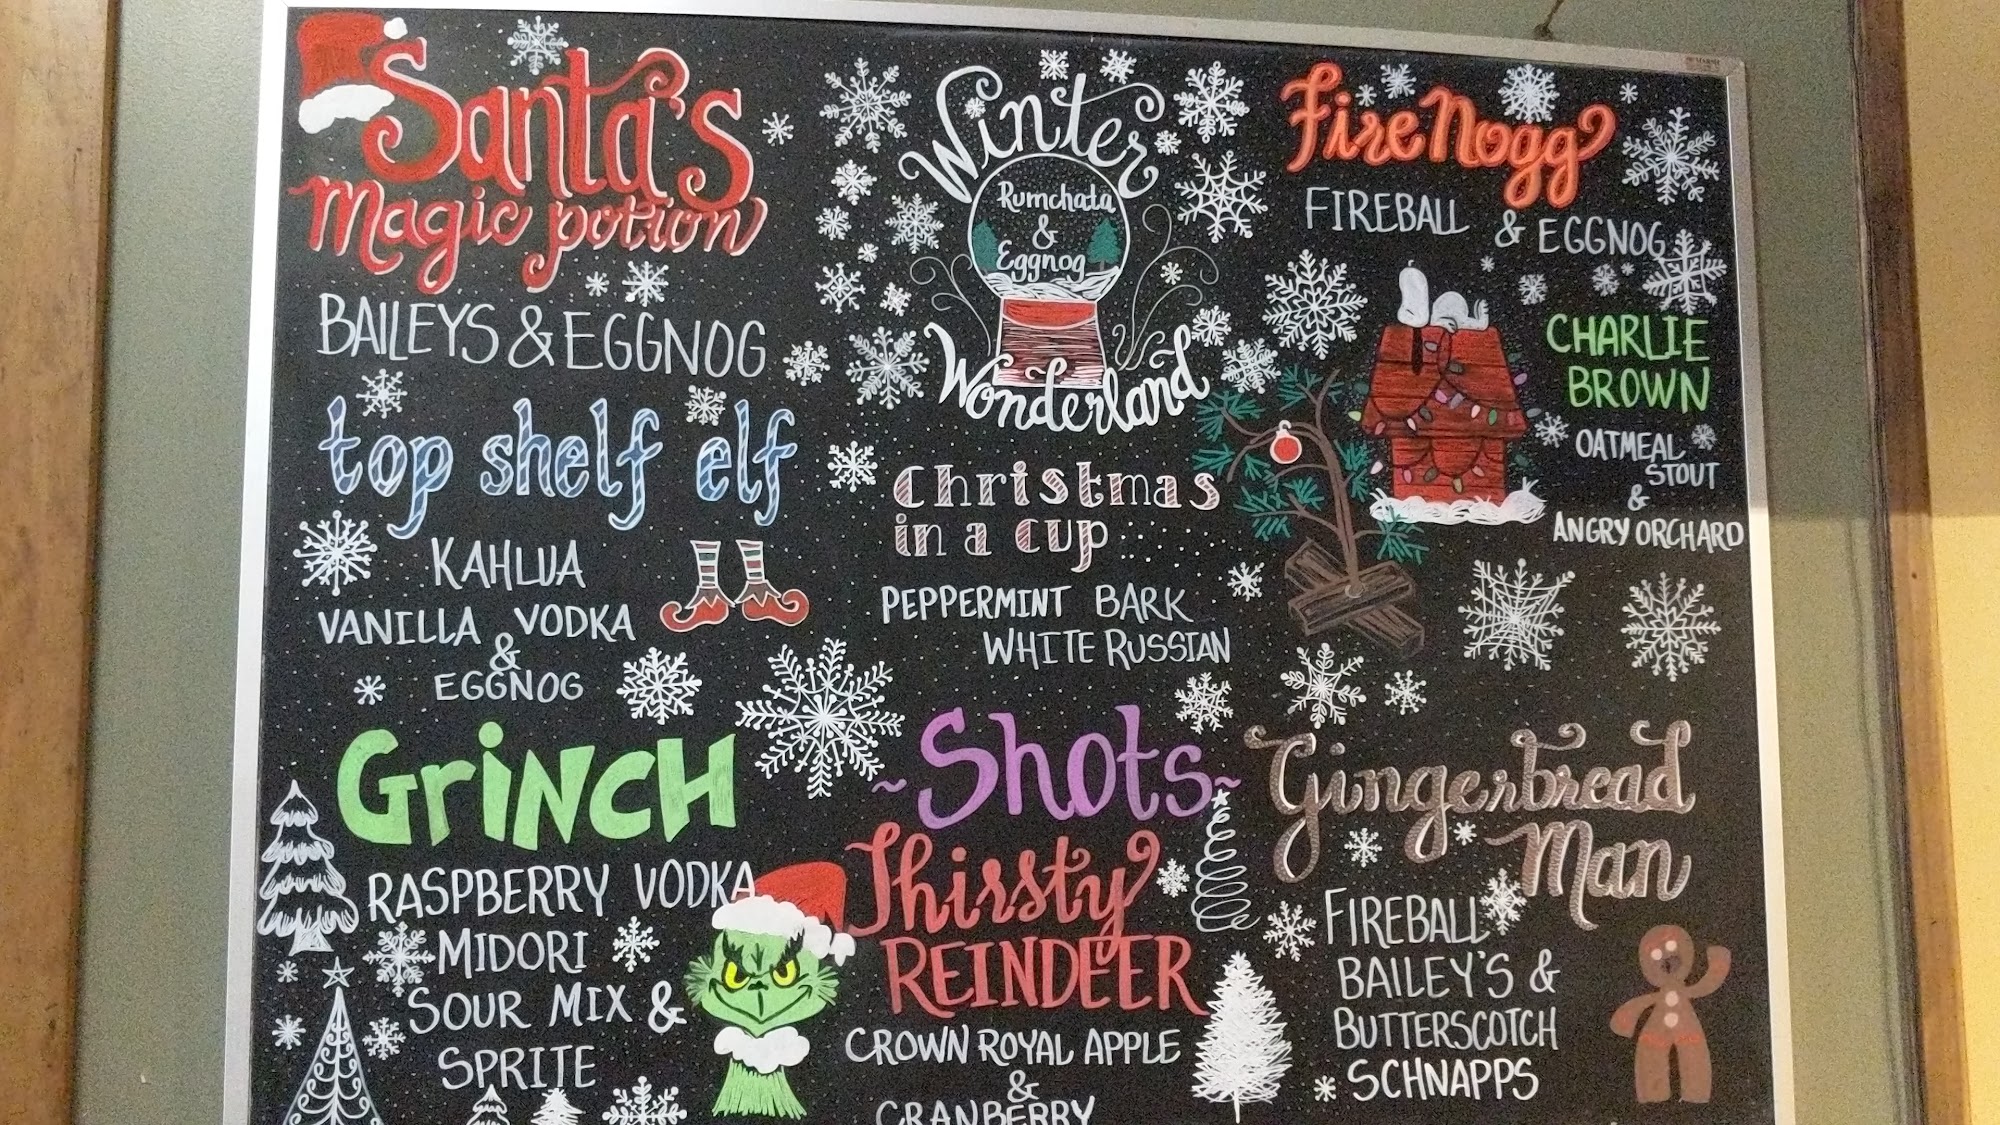 Santa's
Magic potion
BAILEYS & EGGNOG
top shelf elf
KAHLUA
VANILLA VODKA
&
EGGNOG
GriNCH
RASPBERRY VODKA
MIDORI
SOUR MIX &
SPRITE
Winter
Rumchata
&
Eggnog
Wonderland
Christmas
in a cup
PEPPERMINT BARK
WHITE RUSSIAN
~Shots~
Thirsty
REINDEER
CROWN ROYAL APPLE
&
CRANBERRY
Fire Nogg
FIREBALL & EGGNOG
CHARLIE
BROWN
OATMEAL
STOUT
&
ANGRY ORCHARD
Gingerbread
Man
FIREBALL
BAILEY'S &
BUTTERSCOTCH
SCHNAPPS